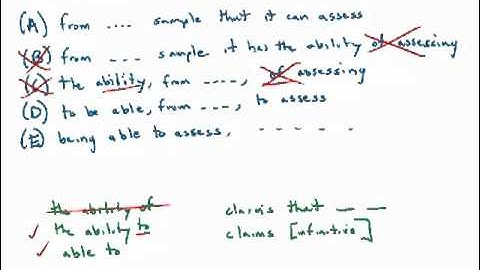 (A) from .... sample that it can assess
(B) from --- sample it has the ability of assessing
(C) the ability, from ----, of assessing
(D) to be able, from ---, to assess
(E) being able to assess, - - - - -
the ability of
✓ the ability to
✓ able to
claims that — —
claims [infinitive]